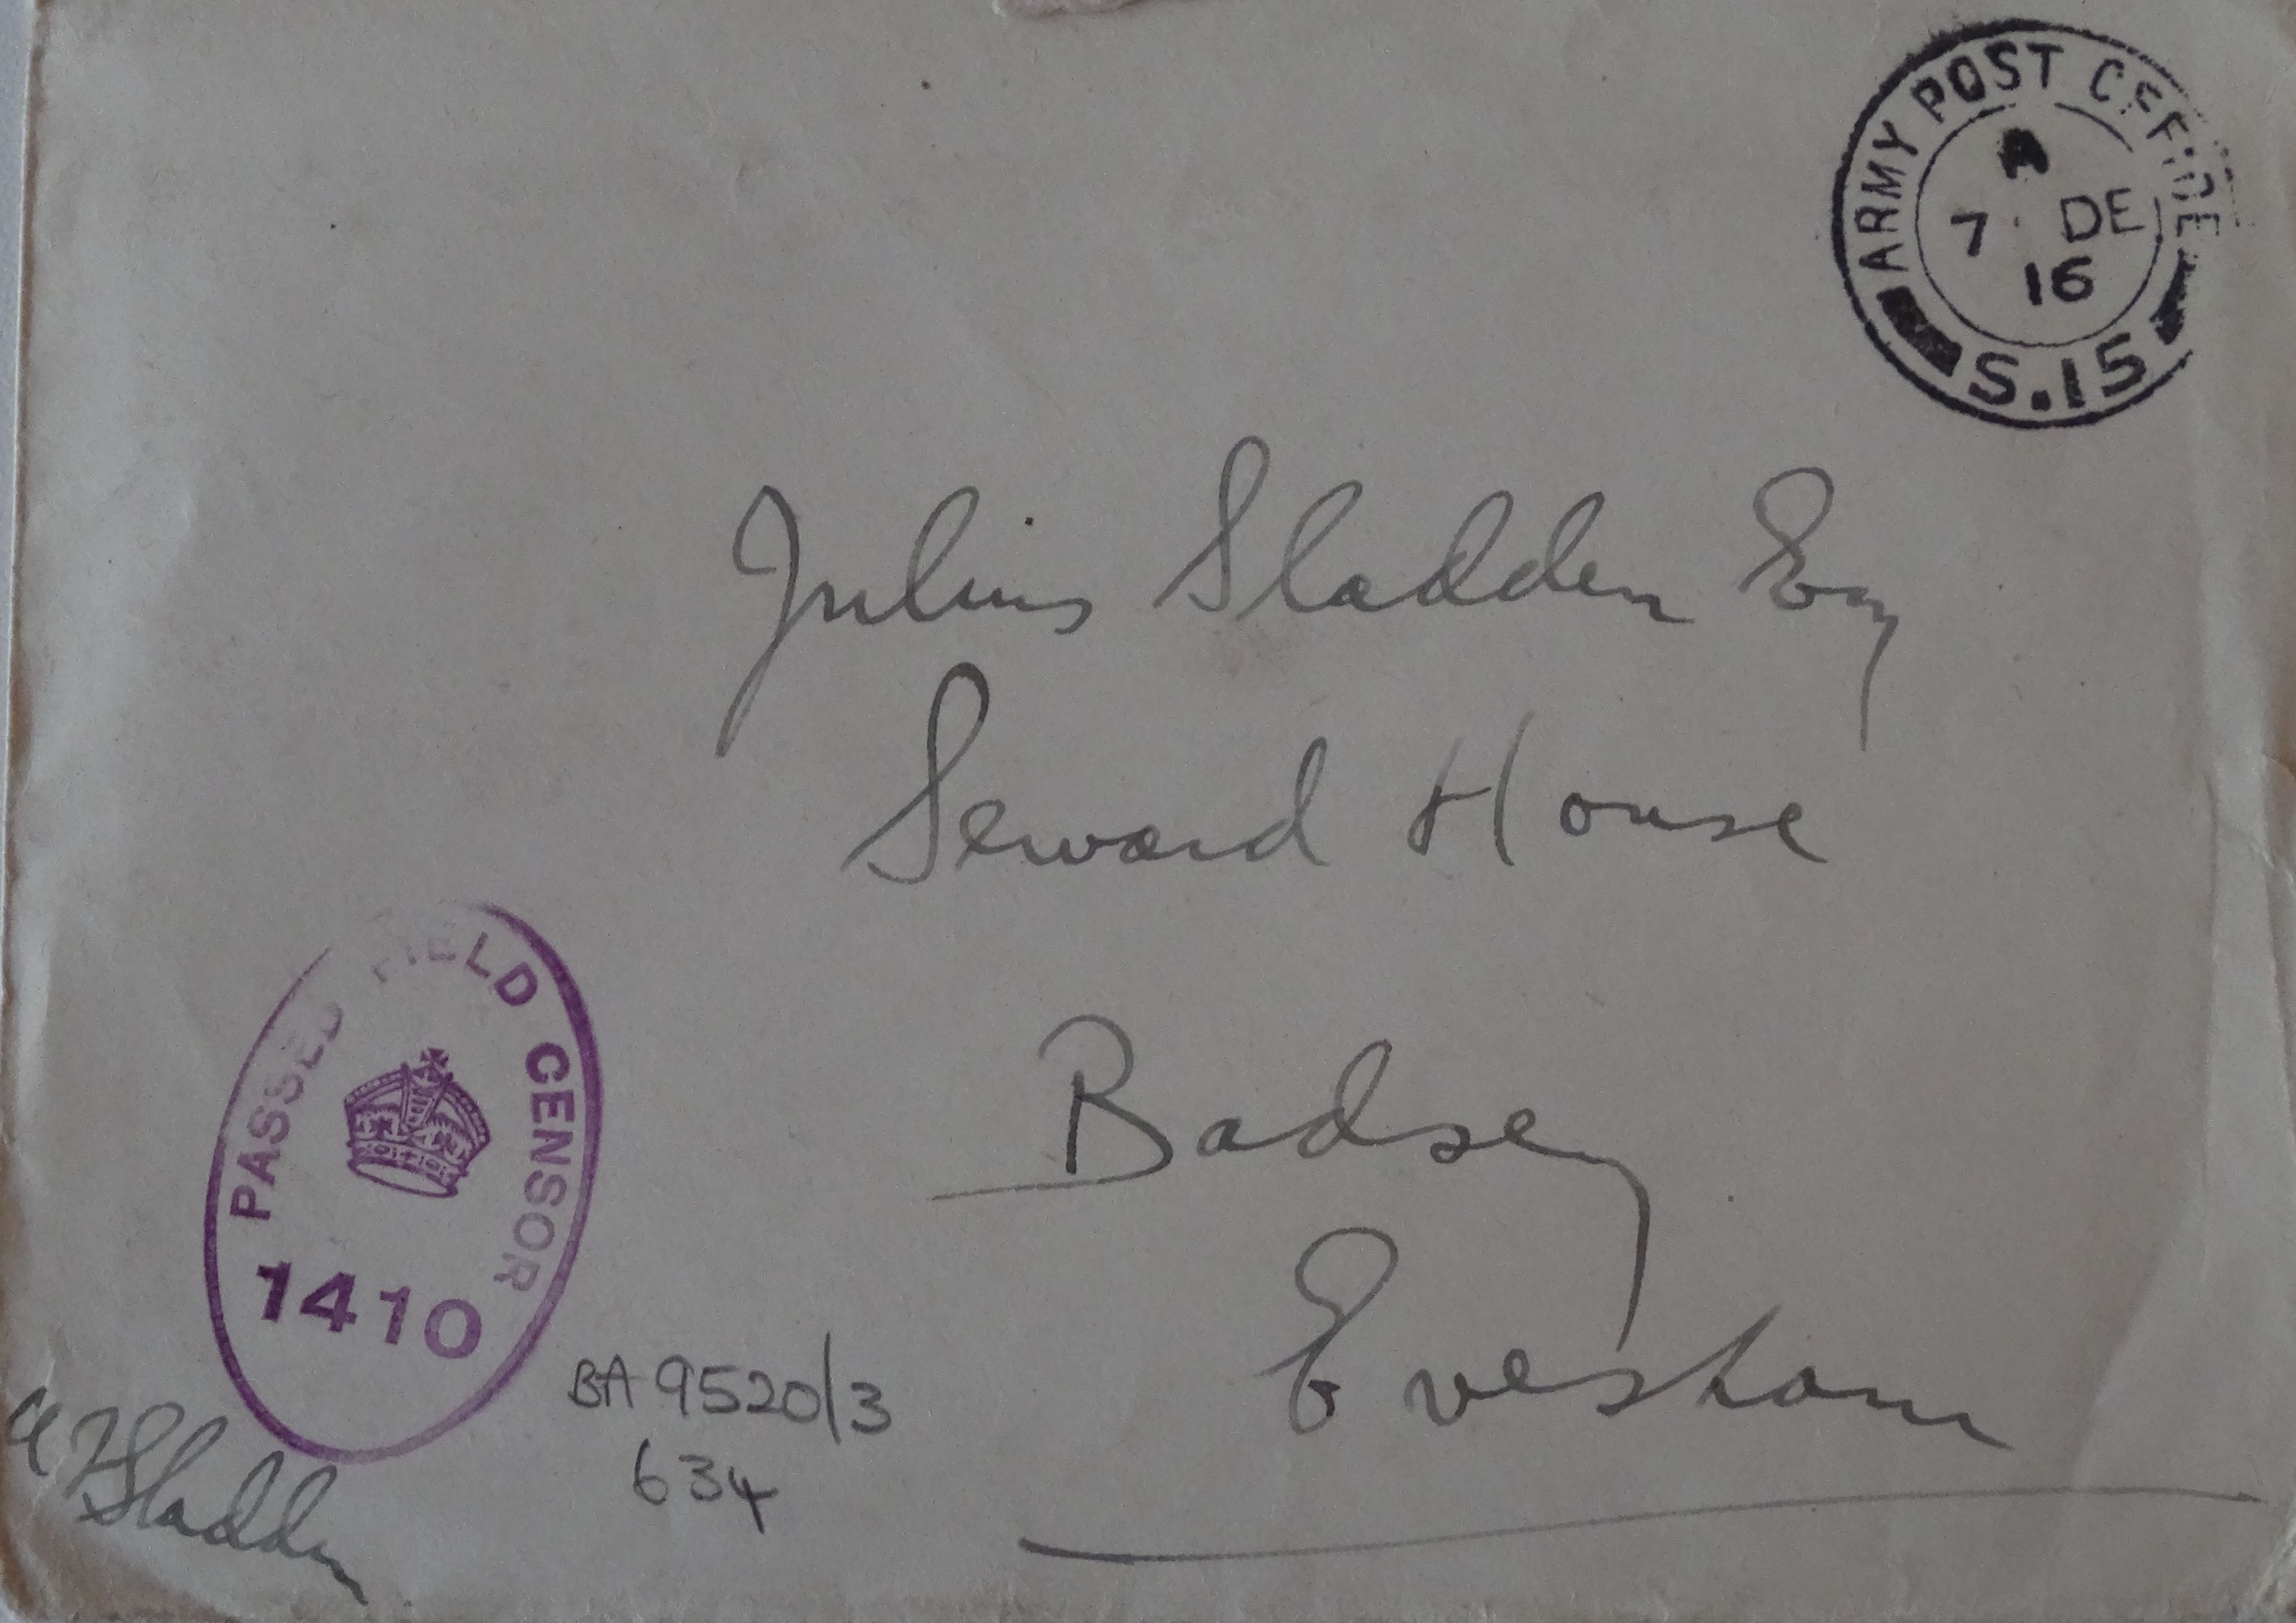 ARMY POST OFFICE
A
7 DE
16
S.15
Julius Sladden Esq
Seward House
Badsey
Evesham
PASSED FIELD CENSOR
1410
BA 9520/3
634
Sladden